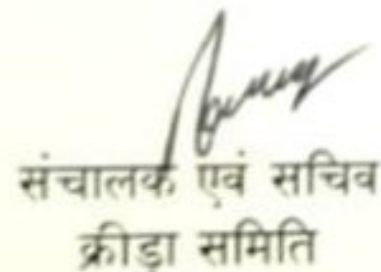 संचालक एवं सचिव
क्रीड़ा समिति